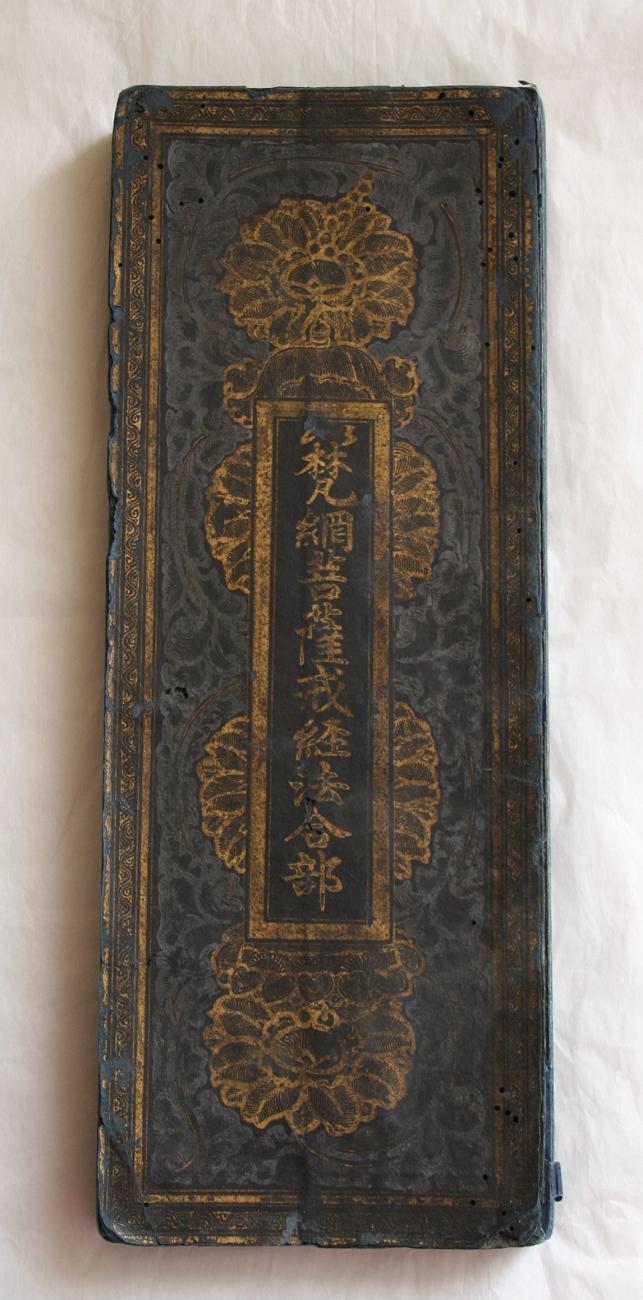 梵網菩薩戒經法合部